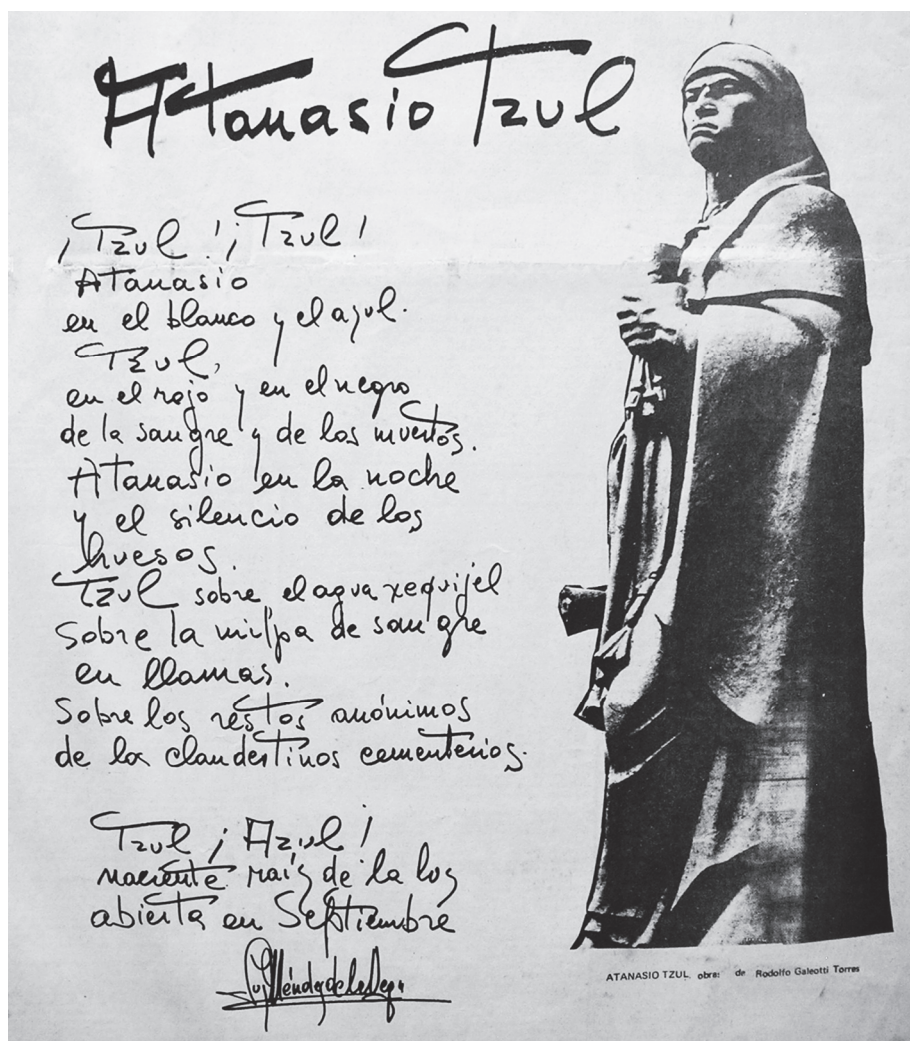 Atanasio Tzul
¡Tzul! ¡Tzul!
Atanasio
en el blanco y el azul.
Tzul,
en el rojo y en el negro
de la sangre y de los muertos.
Atanasio en la noche
y el silencio de los
huesos.
Tzul sobre el agua xequijel
Sobre la milpa de sangre
en llamas.
Sobre los restos anónimos
de los clandestinos cementerios.
Tzul ¡Azul!
naciente raíz de la luz
abierta en Septiembre
Luz Méndez de la Vega
ATANASIO TZUL obra: de Rodolfo Galeotti Torres